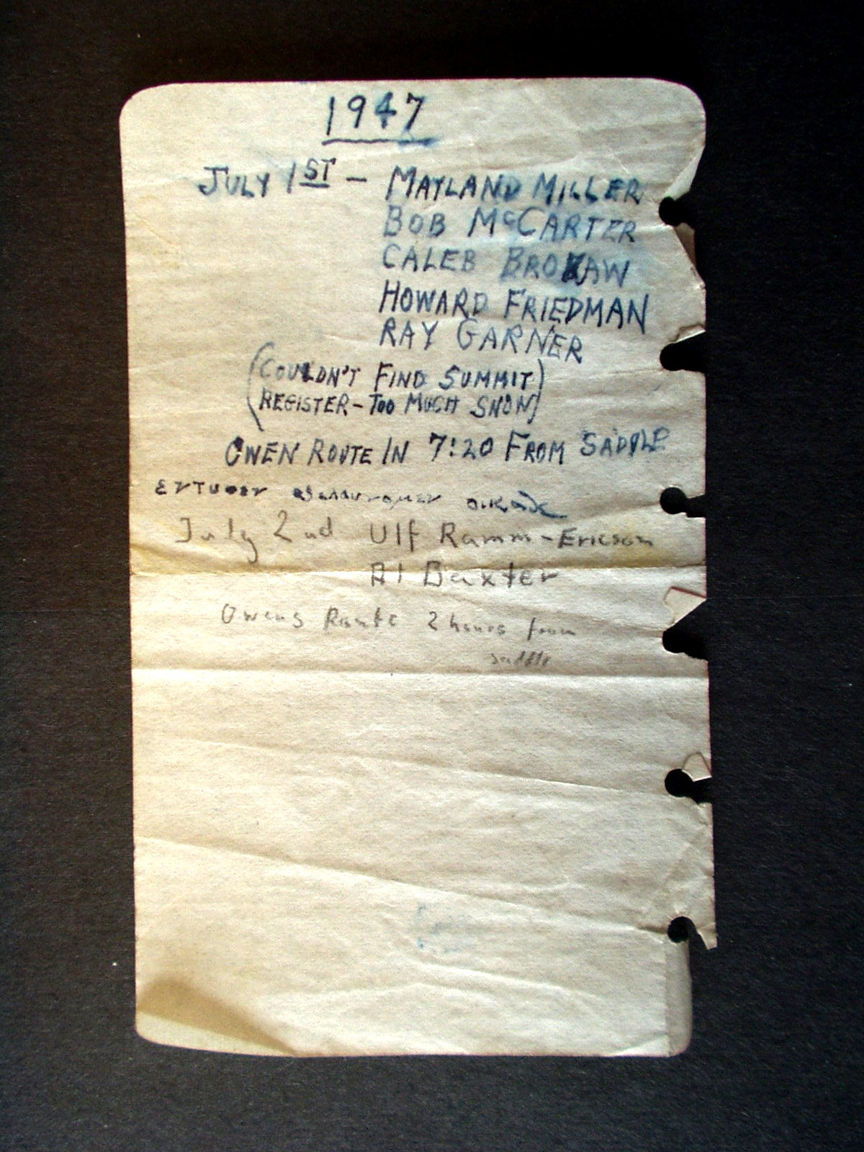 1947
JULY 1ST - MAYLAND MILLER
BOB McCARTER
CALEB BROKAW
HOWARD FRIEDMAN
RAY GARNER
(COULDN'T FIND SUMMIT)
(REGISTER - TOO MUCH SNOW)
OWEN ROUTE IN 7:20 FROM SADDLE
July 2nd Ulf Ramm-Ericson
Al Baxter
Owens Route 2 hours from
saddle